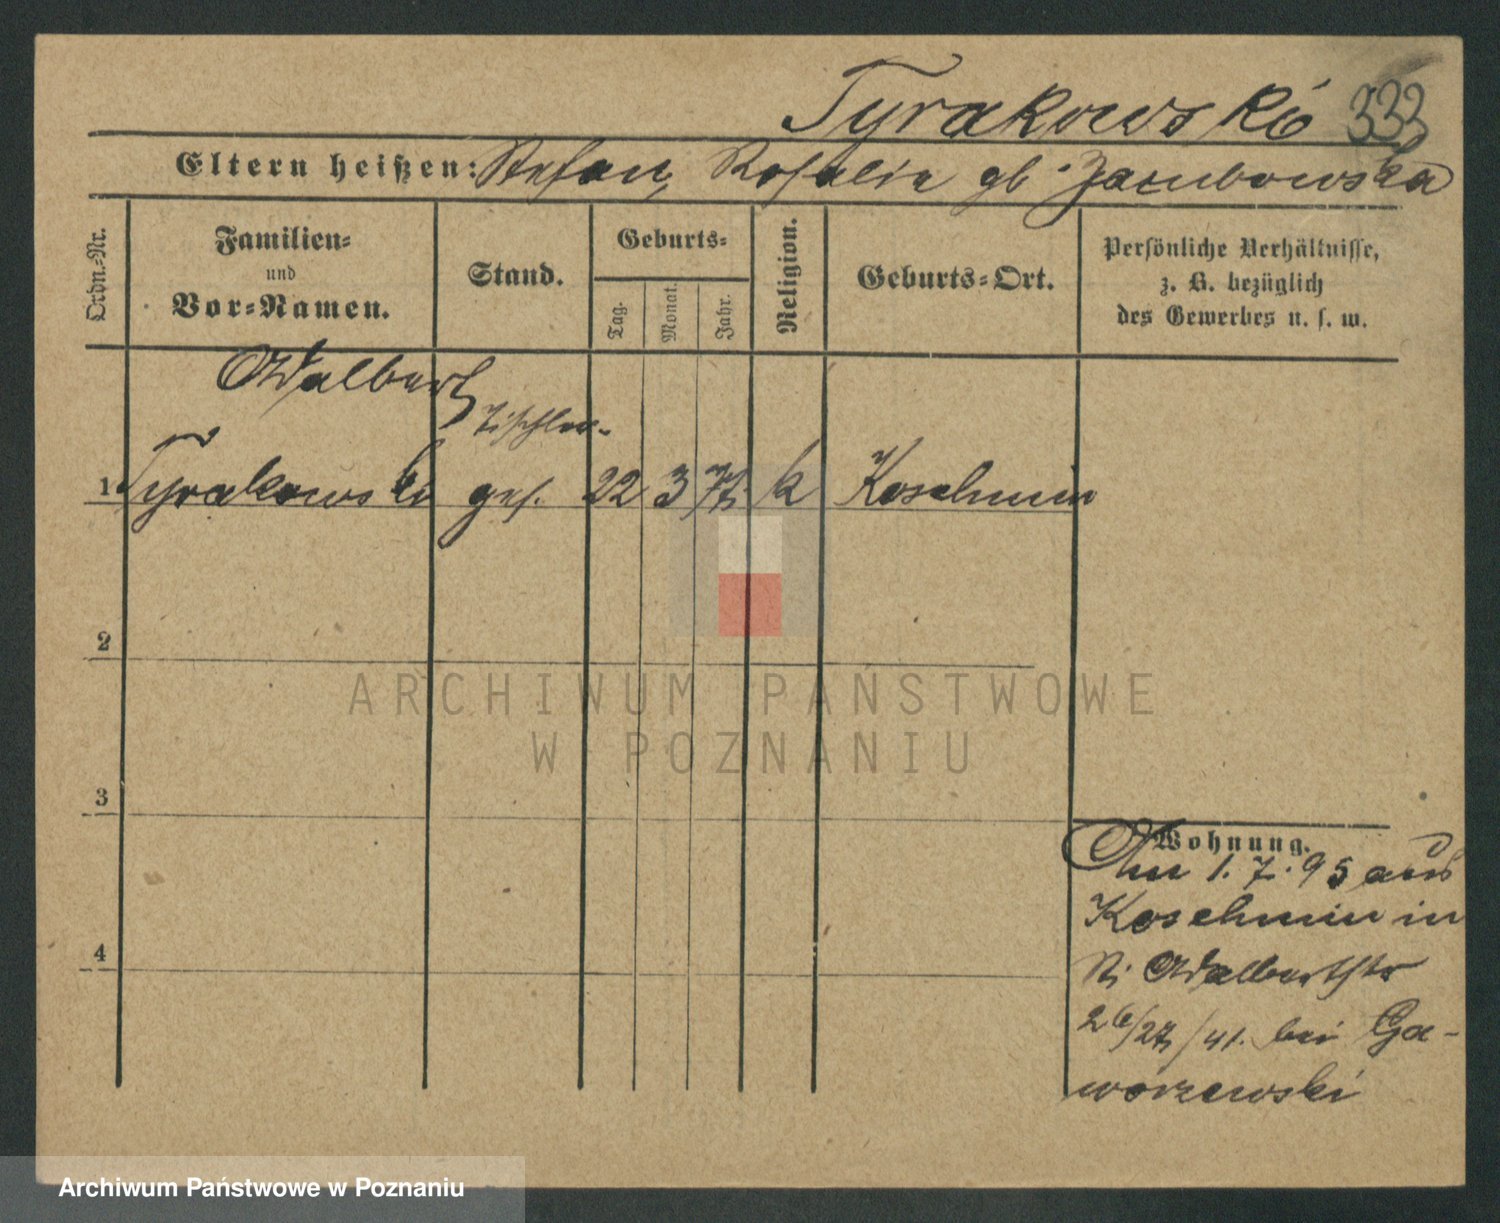 Tyrakowski 333
Eltern heißen: Stefan, Rosalie gb. Jacubowska
Ordn.-Nr.
Familien-
und
Vor-Namen.
Stand.
Geburts-
Tag.
Monat.
Jahr.
Religion.
Geburts-Ort.
Persönliche Verhältnisse,
z. B. bezüglich
des Gewerbes u. s. w.
Adalbert
Tischler-
1 Tyrakowski ges. 22 3 77. k Koschmin
2
ARCHIWUM PAŃSTWOWE
W POZNANIU
3
Wohnung.
Am 1. 7. 95 aus
Koschmin in
St. Adalbertstr
26/27/41. bei Ga-
worzewski
4
Archiwum Państwowe w Poznaniu